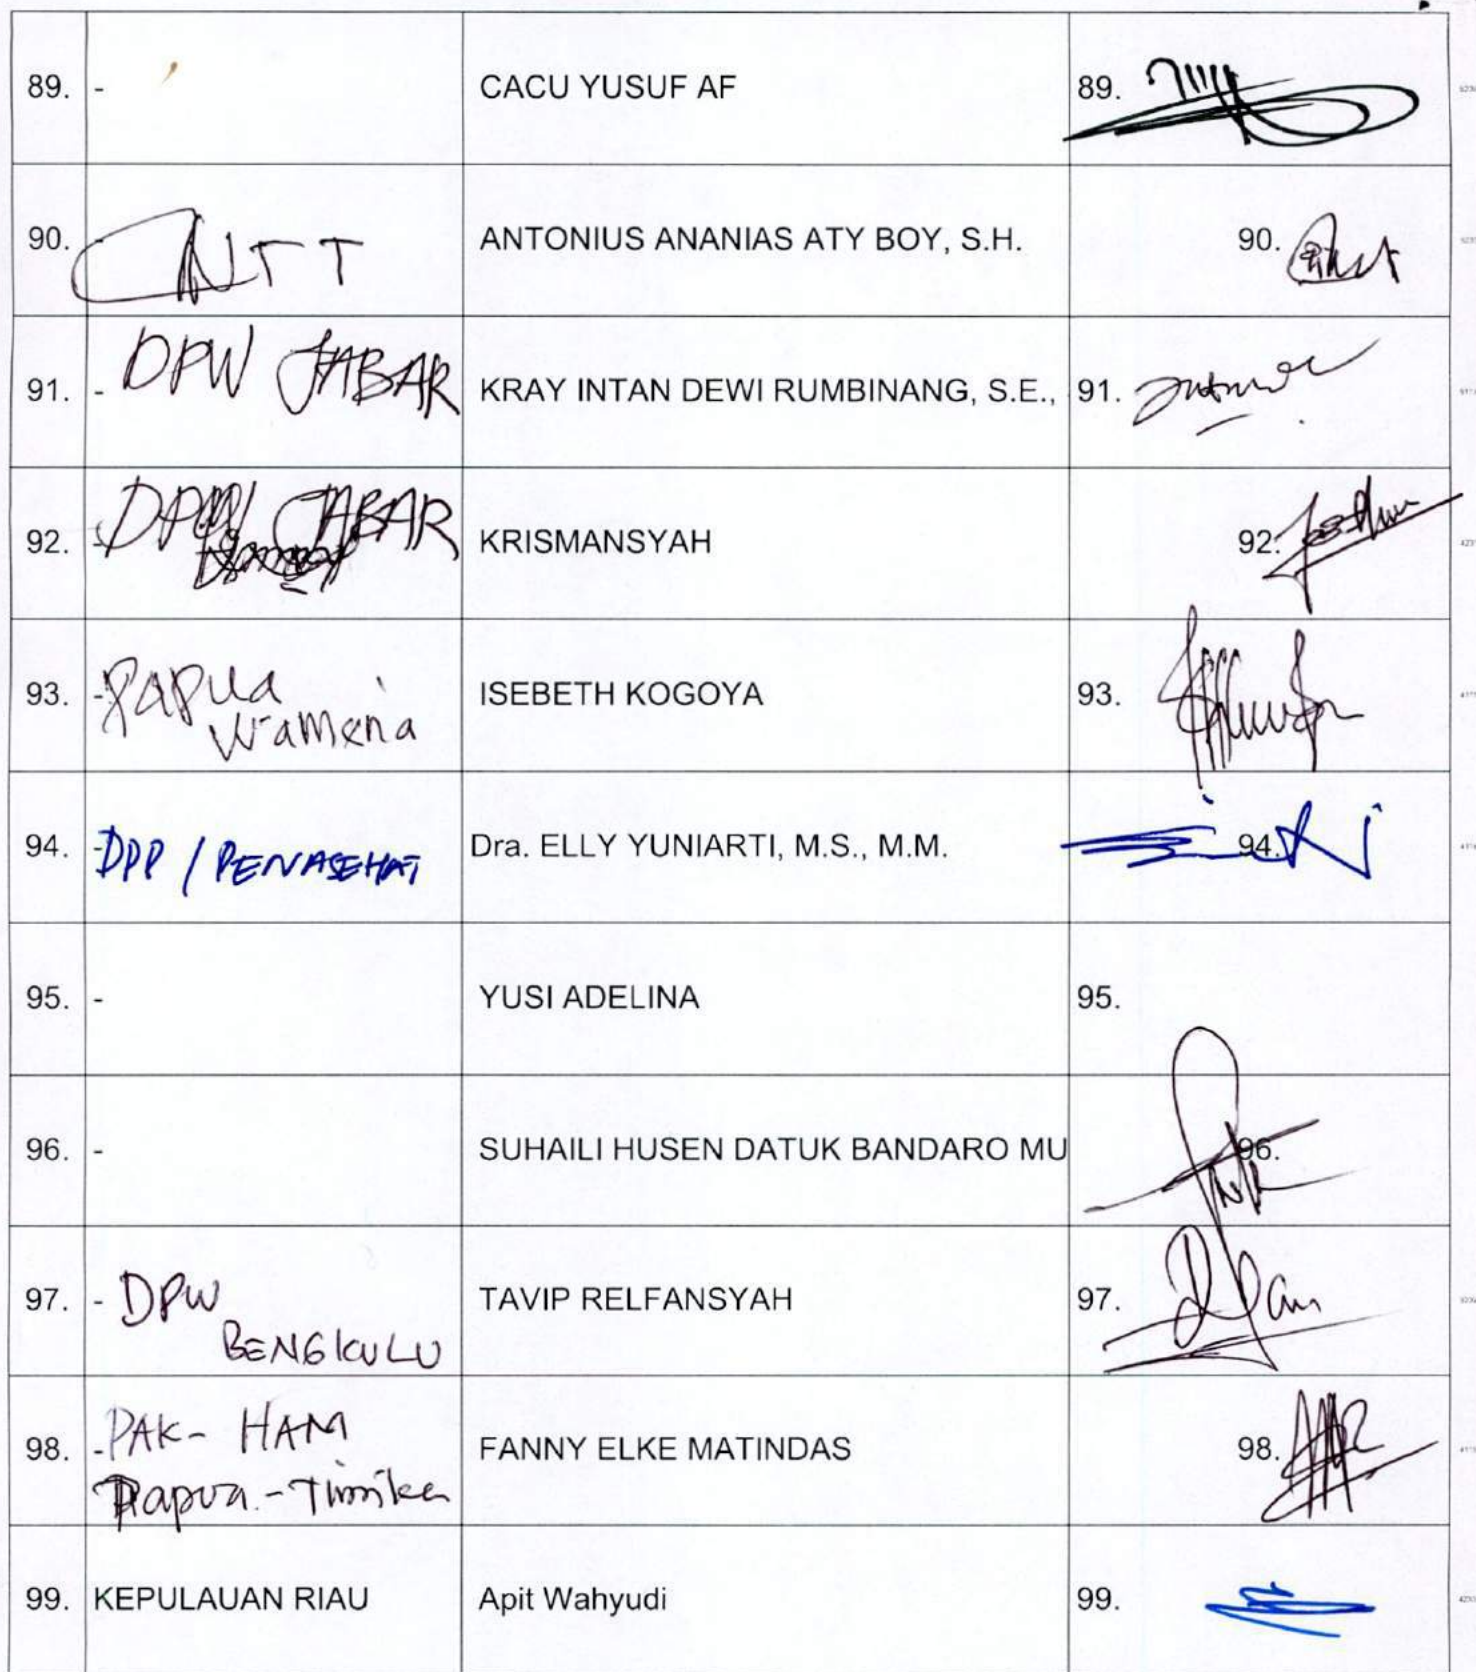 89. - CACU YUSUF AF 89.
90. NTT ANTONIUS ANANIAS ATY BOY, S.H. 90.
91. - DPW JABAR KRAY INTAN DEWI RUMBINANG, S.E., 91.
92. DPW JABAR KRISMANSYAH 92.
93. - PAPUA
Wamena ISEBETH KOGOYA 93.
94. - DPP / PENASEHAT Dra. ELLY YUNIARTI, M.S., M.M. 94.
95. - YUSI ADELINA 95.
96. - SUHAILI HUSEN DATUK BANDARO MU 96.
97. - DPW
BENGKULU TAVIP RELFANSYAH 97.
98. - PAK- HAM
Papua - Timika FANNY ELKE MATINDAS 98.
99. KEPULAUAN RIAU Apit Wahyudi 99.